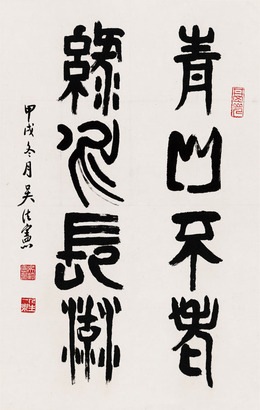 青山不老
綠水長流
甲戌冬月吴法憲